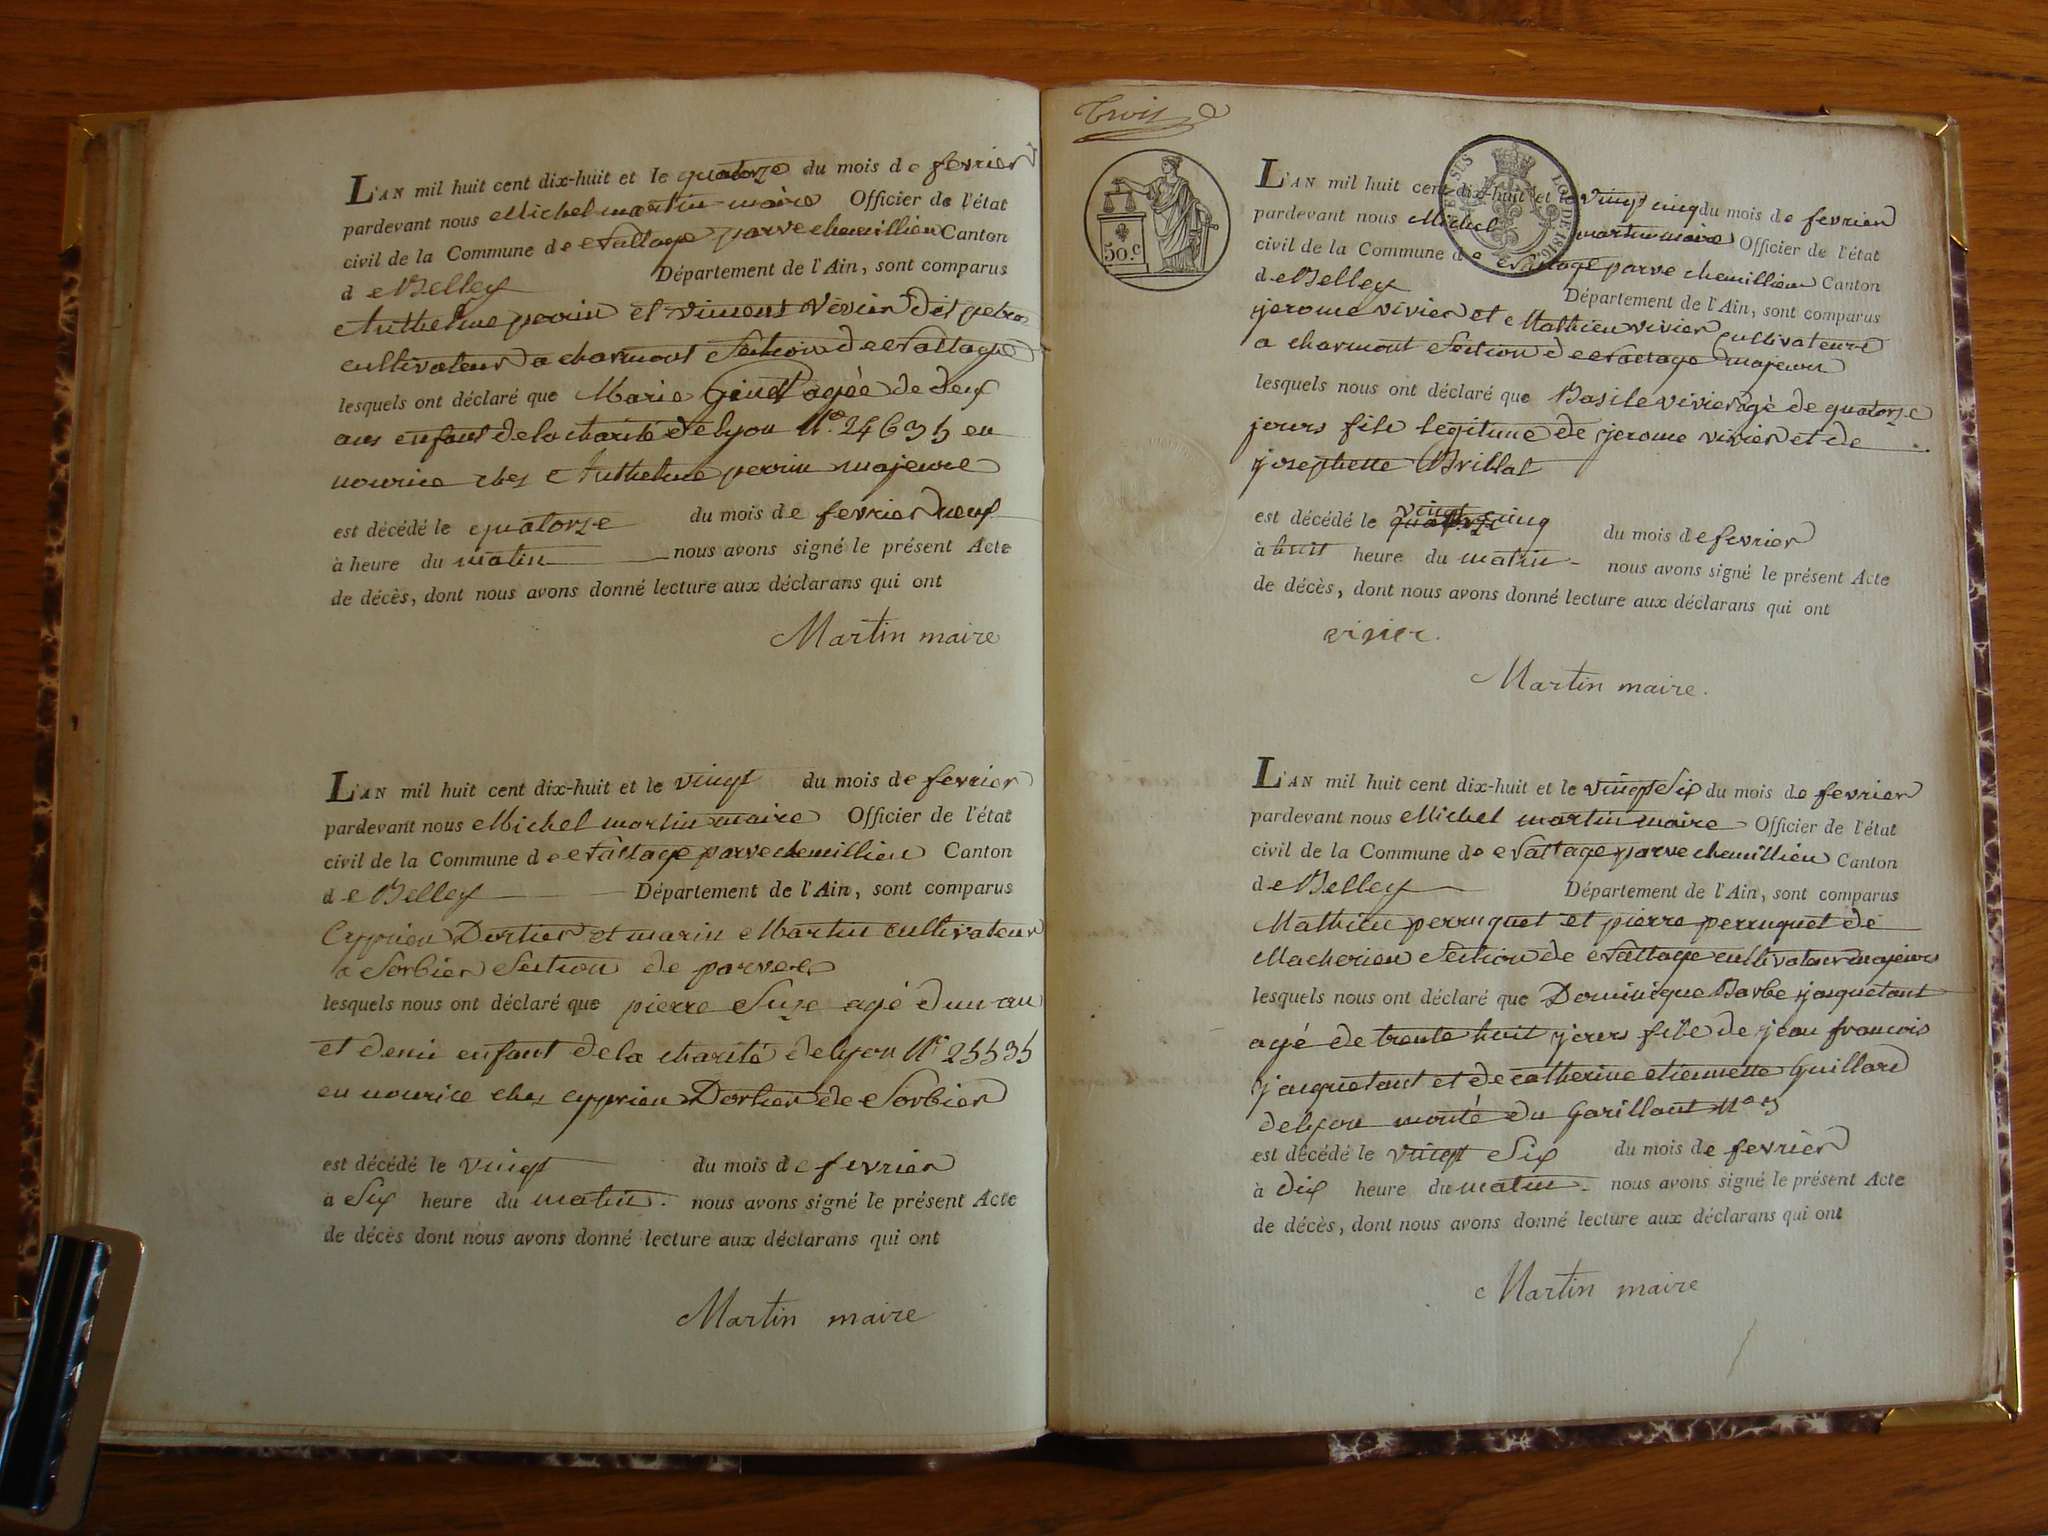 L'AN mil huit cent dix-huit et le quatorze du mois de fevrier
pardevant nous Michel martin maire Officier de l'état
civil de la Commune de nattage parve chemillieu Canton
de Belley Département de l'Ain, sont comparus
Anthelme perrin et vincent vivier dit
cultivateur a charmont Section de nattage
lesquels ont déclaré que Marie agée de deux
ans enfant de la charité de lyon N.° 24635 en
nourice chez Anthelme perrin majeure
est décédé le quatorze du mois de fevrier neuf
à heure du matin nous avons signé le présent Acte
de décès, dont nous avons donné lecture aux déclarans qui ont
Martin maire
L'AN mil huit cent dix-huit et le vingt du mois de fevrier
pardevant nous Michel martin maire Officier de l'état
civil de la Commune de nattage parve chemillieu Canton
de Belley Département de l'Ain, sont comparus
Cyprien Dortier et marin Martin cultivateur
a Sorbier Section de parves
lesquels nous ont déclaré que pierre Suze agé dun an
et demi enfant de la charité de lyon N.° 25535
en nourice chez cyprien Dortier de Sorbier
est décédé le vingt du mois de fevrier
à Six heure du matin. nous avons signé le présent Acte
de décès dont nous avons donné lecture aux déclarans qui ont
Martin maire
Trois
50.c
LOI DE 1816
L'AN mil huit cent dix-huit et le vingt cinq du mois de fevrier
pardevant nous Michel martin maire Officier de l'état
civil de la Commune de nattage parve chemillieu Canton
de Belley Département de l'Ain, sont comparus
jerome vivier et Mathieu vivier cultivateurs
a charmont Section de nattage majeurs
lesquels nous ont déclaré que Basile vivier agé de quatorze
jours fils legitime de jerome vivier et de
josephette Brillat
est décédé le vingt cinq du mois de fevrier
à huit heure du matin nous avons signé le présent Acte
de décès, dont nous avons donné lecture aux déclarans qui ont
vivier.
Martin maire.
L'AN mil huit cent dix-huit et le vingt Six du mois de fevrier
pardevant nous Michel martin maire Officier de l'état
civil de la Commune de nattage parve chemillieu Canton
de Belley Département de l'Ain, sont comparus
Mathieu perruquet et pierre perruquet de
Macherieu Section de nattage cultivateur majeurs
lesquels nous ont déclaré que Dominique Barbe jasquetant
agé de trente huit jours fils de jean francois
jasquetant et de catherine etiennette Guillard
de lyon monté du Garillant N.°
est décédé le vingt Six du mois de fevrier
à dix heure du matin nous avons signé le présent Acte
de décès, dont nous avons donné lecture aux déclarans qui ont
Martin maire